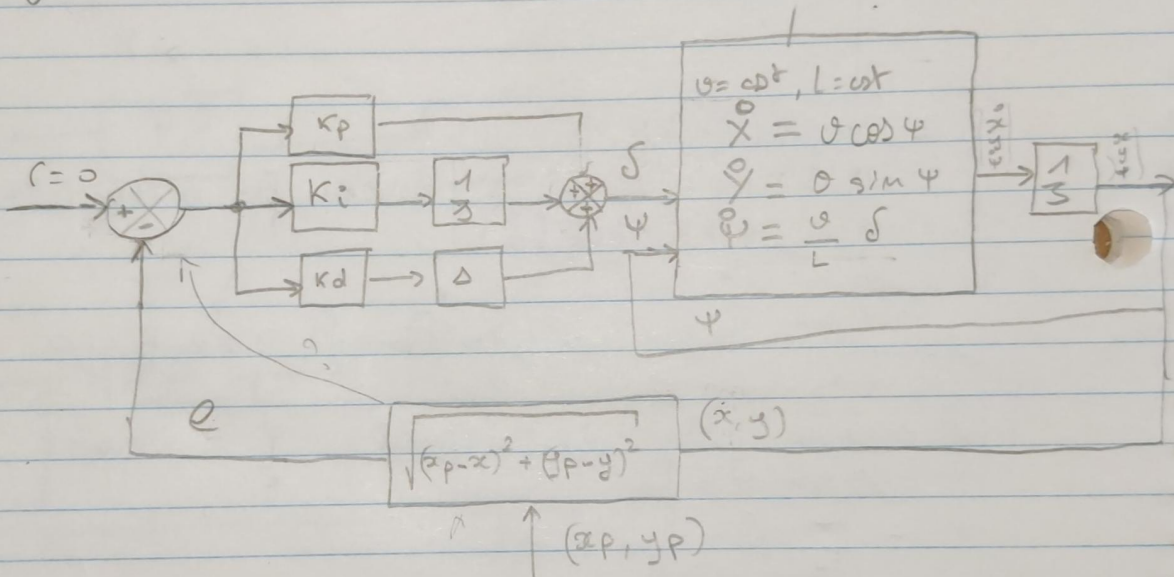 r = 0
+
-
Kp
Ki
1
s
Kd
Δ
+
+
+
δ
ψ
v = cst, L = cst
Ẋ = v cos ψ
Ẏ = v sin ψ
ψ̇ = v/L δ
1
s
ψ
?
e
√(xp-x)² + (yp-y)²
(x, y)
(xp, yp)